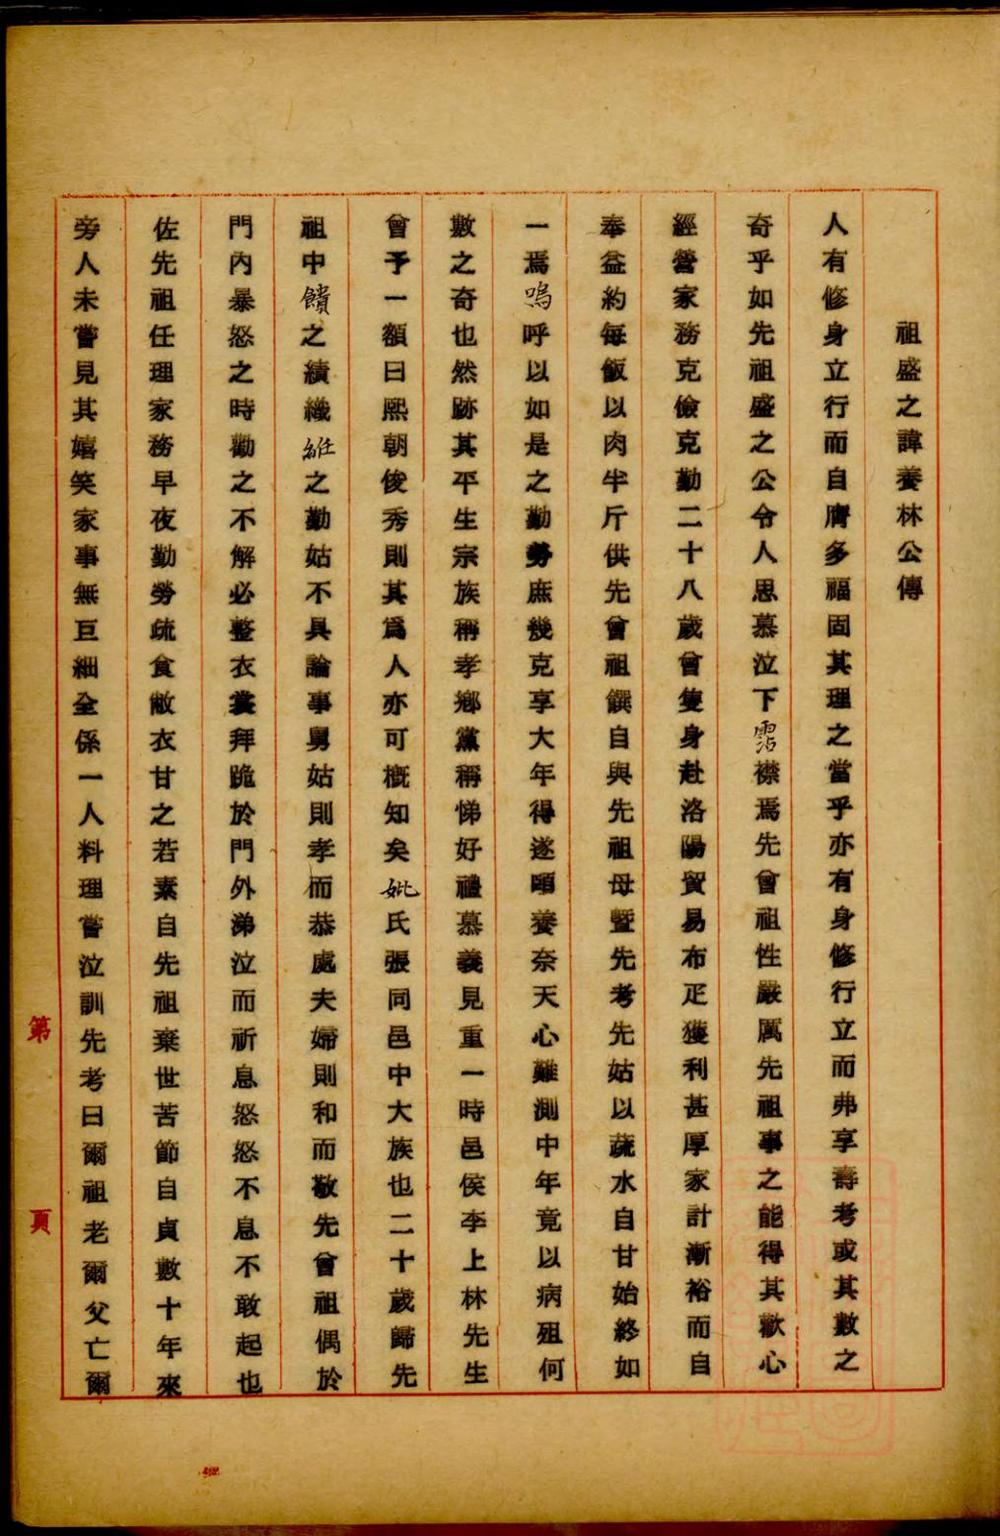 祖盛之諱養林公傳
人有修身立行而自膺多福固其理之當乎亦有身修行立而弗享壽考或其數之
奇乎如先祖盛之公令人思慕泣下霑襟焉先曾祖性嚴厲先祖事之能得其歡心
經營家務克儉克勤二十八歲曾隻身赴洛陽貿易布疋獲利甚厚家計漸裕而自
奉益約每飯以肉半斤供先曾祖饌自與先祖母暨先考先姑以蔬水自甘始終如
一焉嗚呼以如是之勤勞庶幾克享大年得遂頤養奈天心難測中年竟以病殂何
數之奇也然跡其平生宗族稱孝鄉黨稱悌好禮慕義見重一時邑侯李上林先生
曾予一額曰熙朝俊秀則其爲人亦可概知矣妣氏張同邑中大族也二十歲歸先
祖中饋之績織絍之勤姑不具論事舅姑則孝而恭處夫婦則和而敬先曾祖偶於
門內暴怒之時勸之不解必整衣裳拜跪於門外涕泣而祈息怒怒不息不敢起也
佐先祖任理家務早夜勤勞疏食敝衣甘之若素自先祖棄世苦節自貞數十年來
旁人未嘗見其嬉笑家事無巨細全係一人料理嘗泣訓先考曰爾祖老爾父亡爾
第
頁